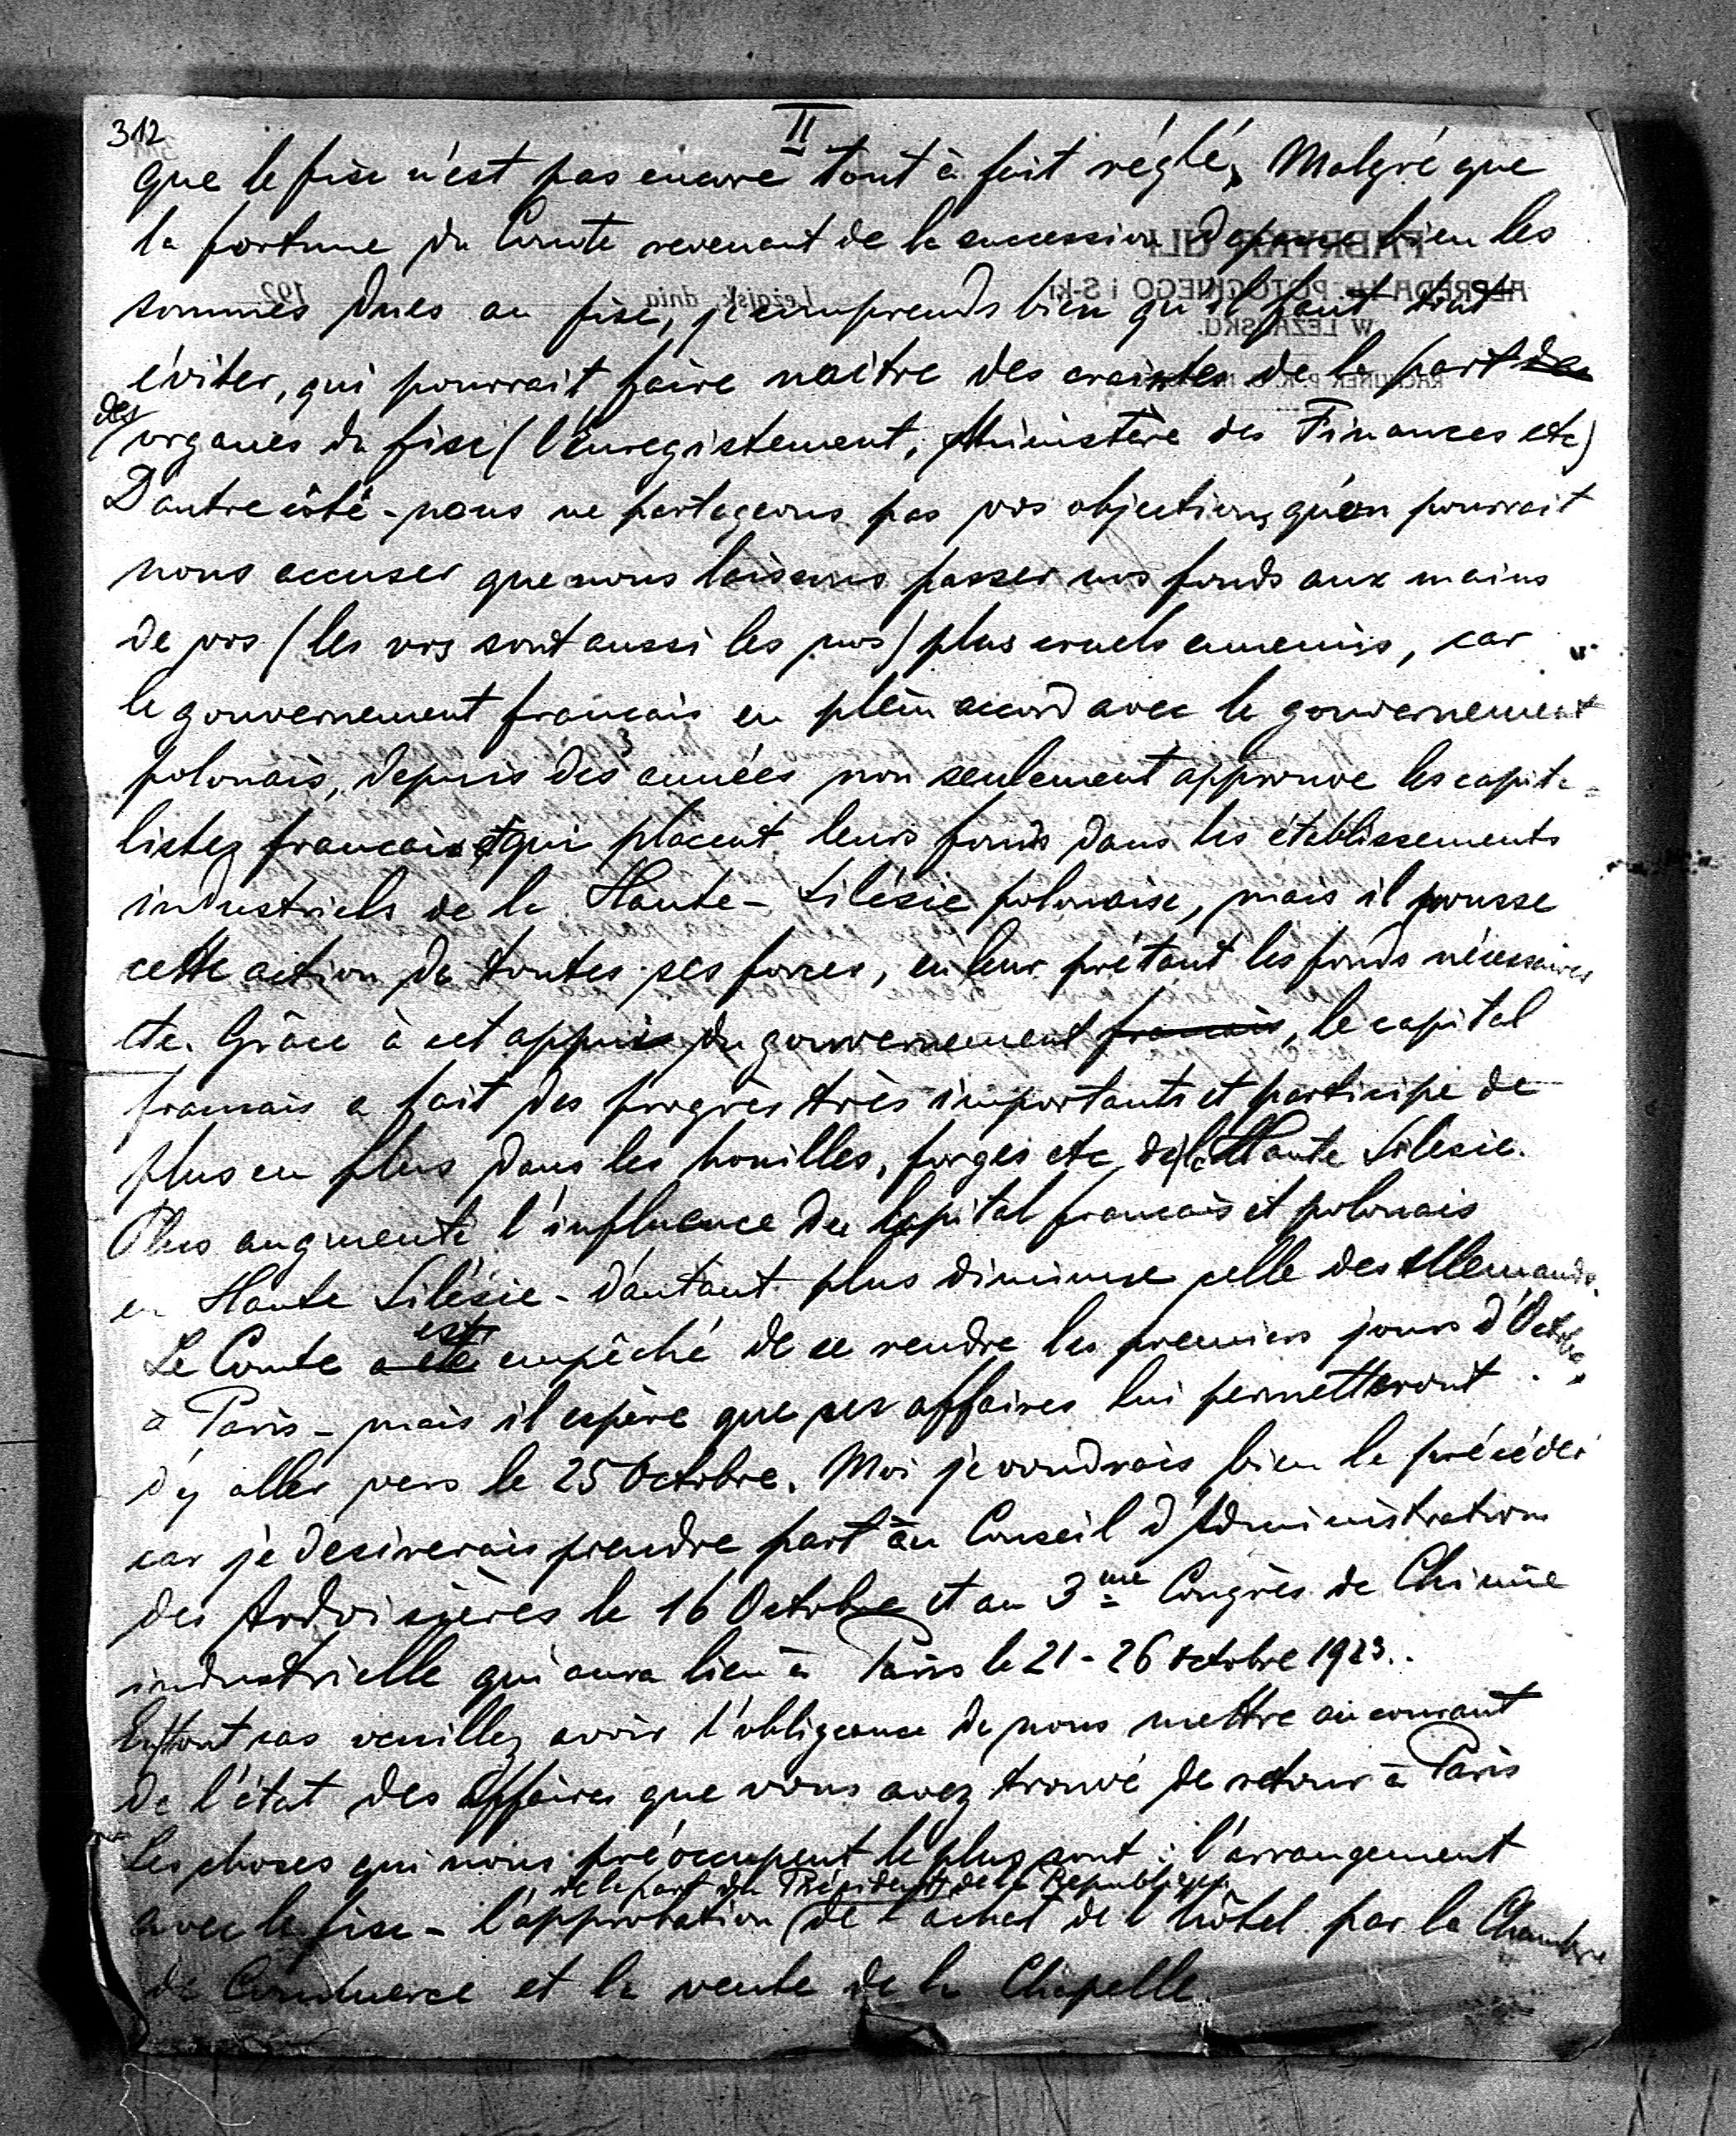 312
II
que le fisc n'est pas encore tout à fait réglé, Malgré que
la fortune du Comte revenant de la succession depasse bien les
sommes dues au fisc, je comprends bien qu'il faut tout
éviter, qui pourrait faire naitre des craintes de la part
des organes du fisc (l'Enregistement, Ministère des Finances etc)
D'autre côté - nous ne partageons pas vos objections, qu'on pourrait
nous accuser que nous laissons passer nos fonds aux mains
de vos (les vos sont aussi les nos) plus cruels ennemis, car
le gouvernement francais en plein accord avec le gouvernement
polonais, depuis des 3 années non seulement approuve les capita-
listes francais qui placent leurs fonds dans les établissements
industriels de la Haute-Silésie polonaise, mais il pousse
cette action de toutes ses forces, en leur prétant les fonds nécessaires
etc. Grâce à cet appui du gouvernement francais, le capital
francais a fait des progrès très importants et participe de
plus en plus dans les houilles, forges etc de la Haute Silesie.
Plus augmente l'influence du capital francais et polonais
en Haute Silésie - d'autant plus diminue celle des Allemands.
Le Comte a été est empêché de se rendre les premiers jours d'Octobre
à Paris - mais il espère que ses affaires lui permetteront
d'y aller vers le 25 Octobre. Moi je voudrais bien le précéder
car je desirerais prendre part au Conseil d'Administration
des Ardoisières le 16 Octobre et au 3me Congrès de Chimie
industrielle qui aura lieu à Paris le 21-26 octobre 1923..
En tout cas veuillez avoir l'obligeance de nous mettre au courant
de l'état des affaires que vous avez trouvé de retour à Paris
Les choses qui nous préoccupent le plus sont: l'arrangement
avec le fisc - l'approbation (de la part du Président de la Republique) de l'achat de l'hôtel par la Chambre
de Commerce et la vente de la Chapelle.
FABRYKA
ALFREDA HR. POTOCKIEGO i S-ki
W LEŻAJSKU.
Leżajsk, dnia 192